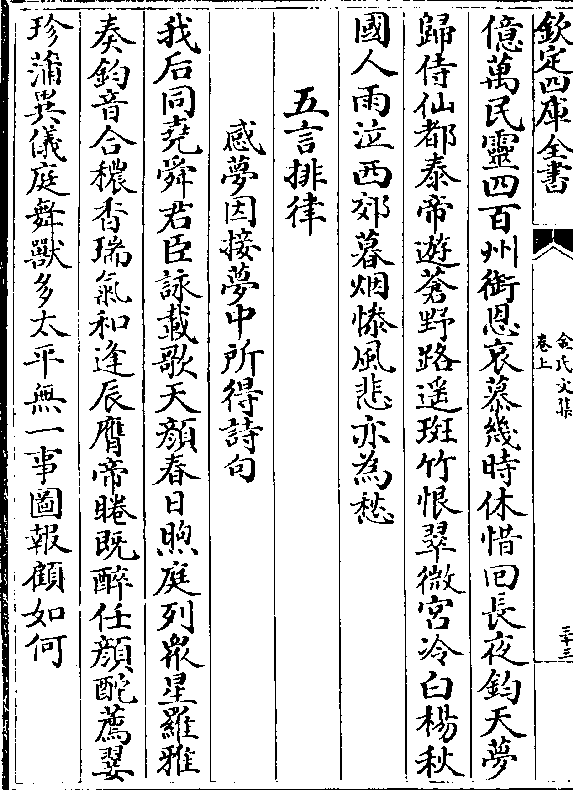 欽定四庫全書
佘氏文集
卷上
三十三
億萬民靈四百州銜恩哀慕幾時休惜回長夜鈞天夢
歸侍仙都泰帝遊蒼野路遥斑竹恨翠微宫冷白楊秋
國人雨泣西郊暮烟慘風悲亦為愁
五言排律
感夢因接夢中所得詩句
我后同堯舜君臣詠載歌天顔春日煦庭列衆星羅雅
奏鈞音合穠香瑞氣和逢辰膺帝睠既醉任顔酡薦翣
珍蒲異儀庭舞獸多太平無一事圖報顧如何